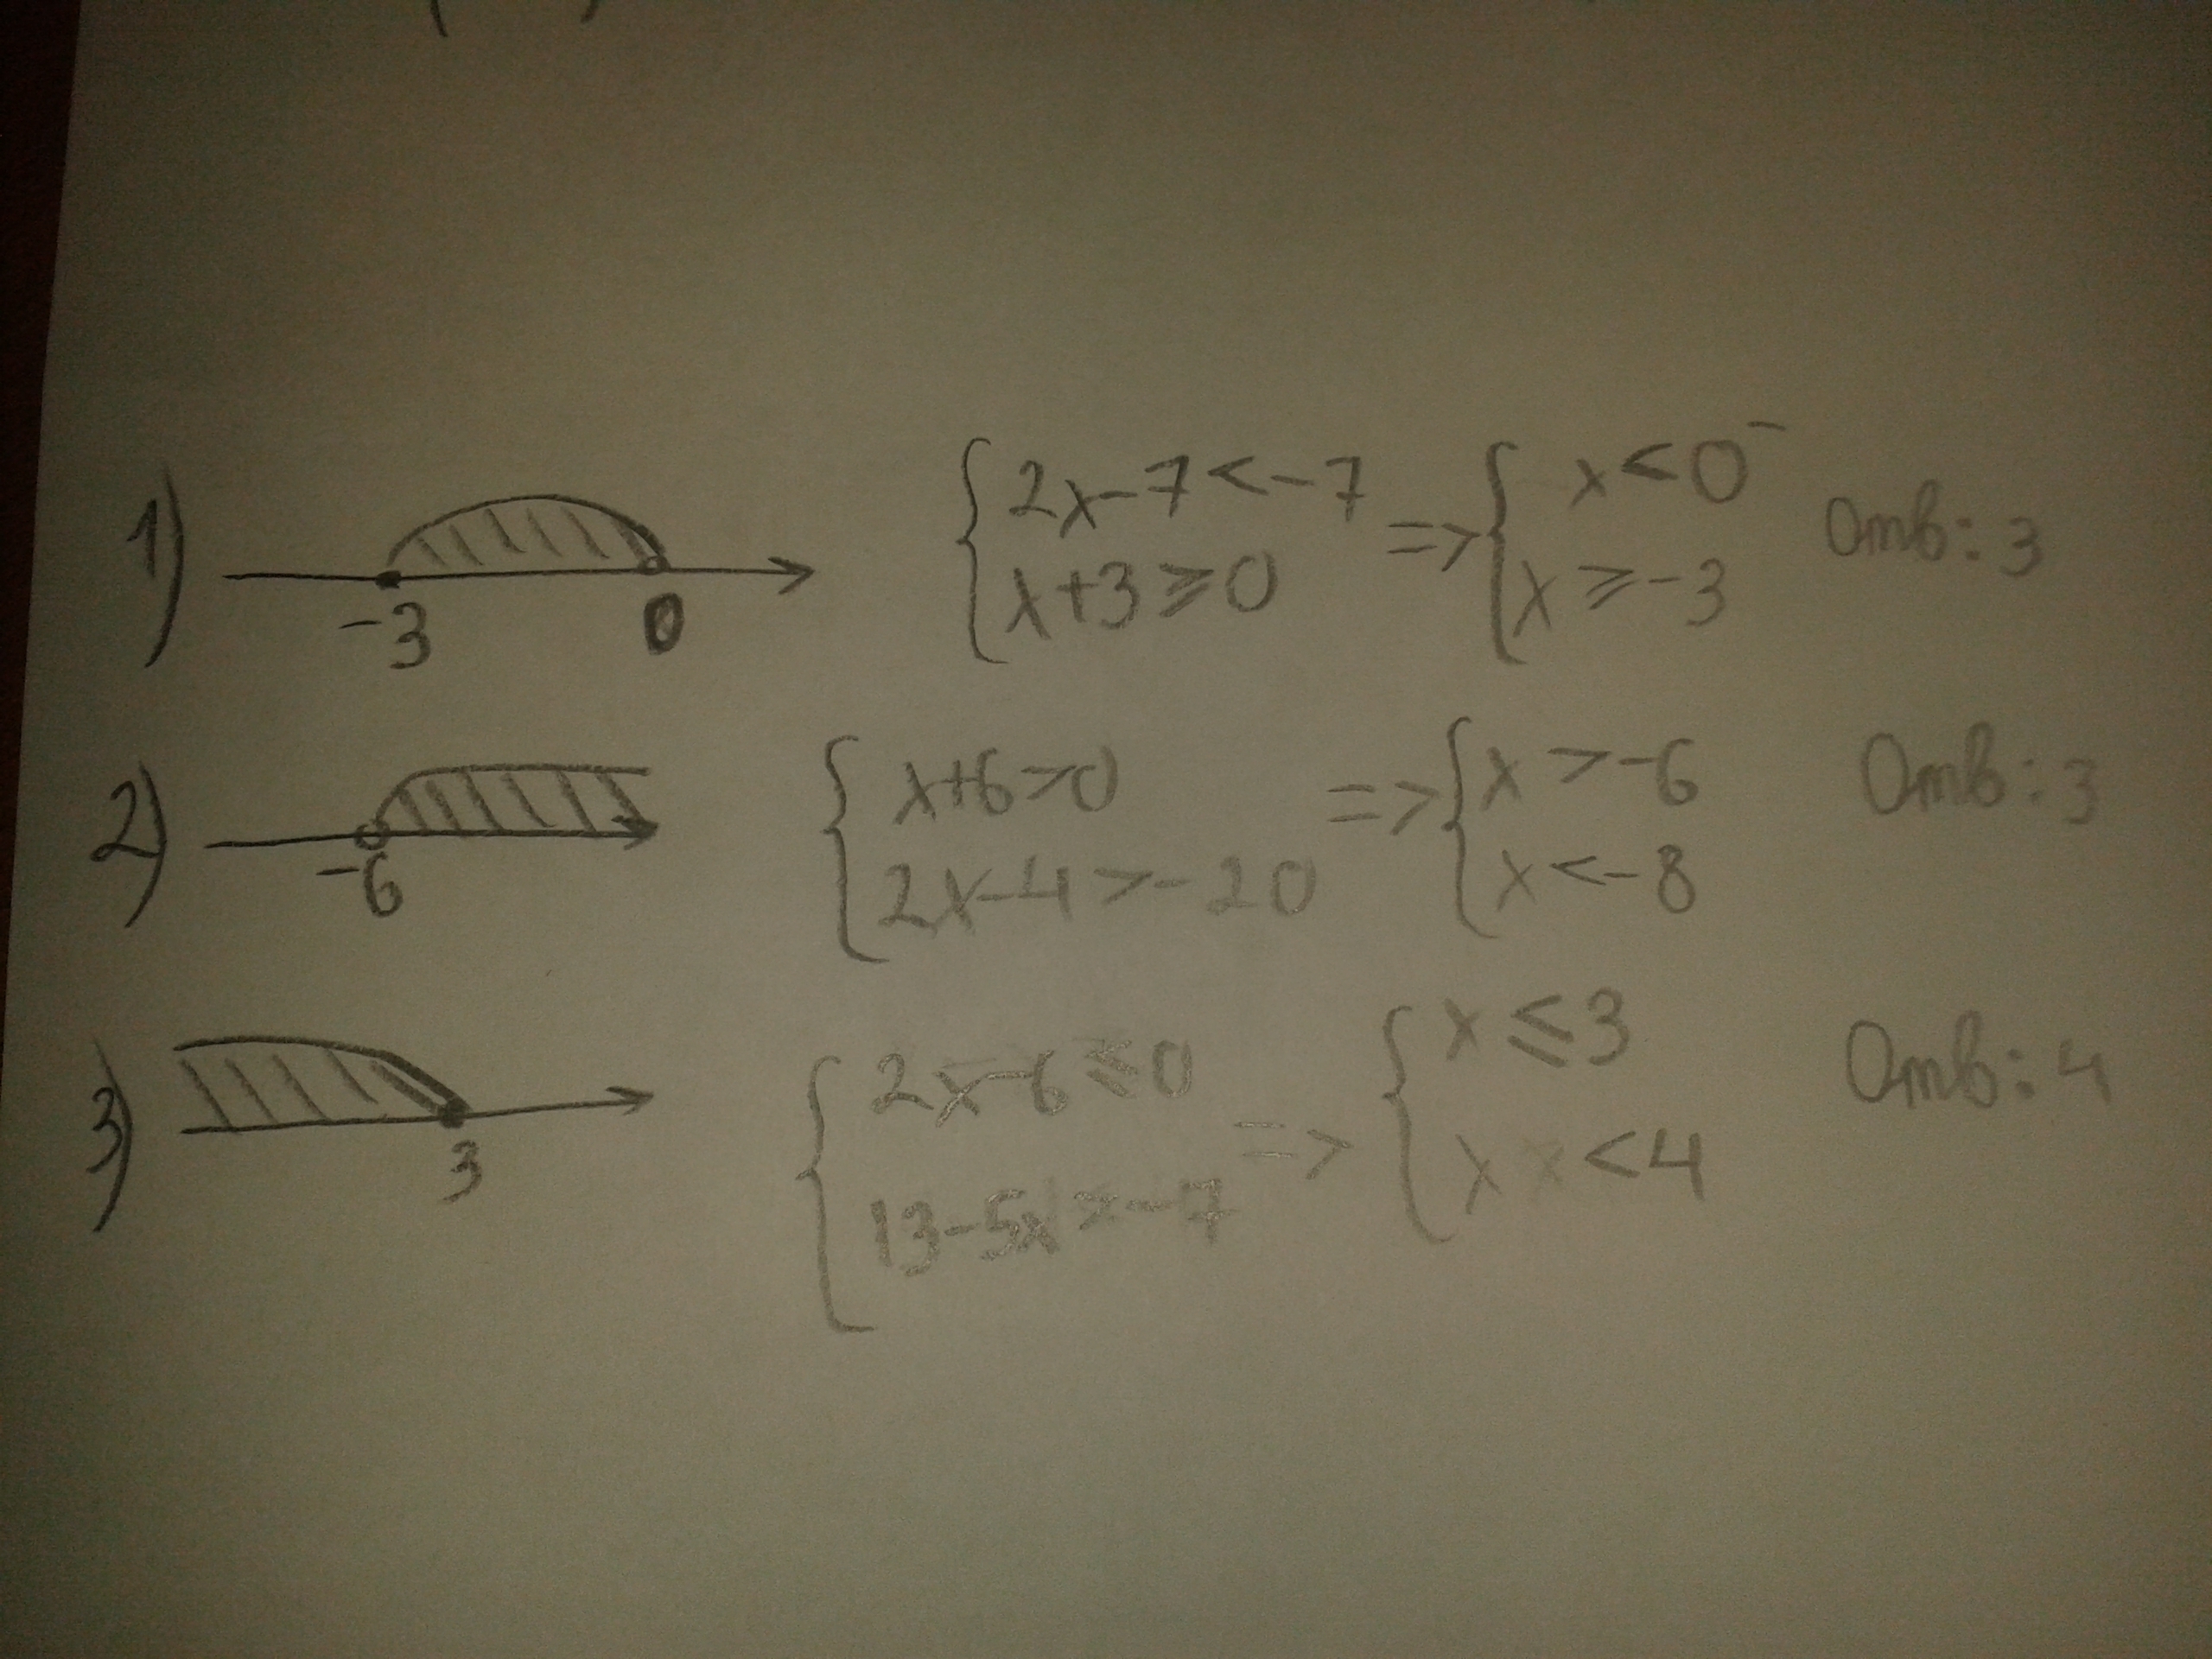 1) -3 0 { 2x-7<-7 x+3⩾0 => { x<0 x⩾-3 Отв: 3
2) -6 { x+6>0 2x-4>-20 => { x>-6 x<-8 Отв: 3
3) 3 { 2x-6⩽0 13-5x>-7 => { x⩽3 x x<4 Отв: 4